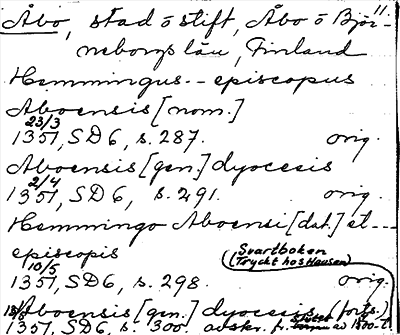 11.
Åbo, stad o stift, Åbo o Björ-
neborgs län, Finland
Hemmingus -- episcopus
Aboensis [nom.]
23/3
1351, SD6, s. 287. orig.
Aboensis [gen.] dyocesis
2/4
1351, SD6, s. 291. orig.
Hemmingo Aboensi [dat.] et ---
episcopis
Svartboken
(Tryckt hos Hausen)
10/5
1351, SD6, s. 298. orig.
Aboensis [gen.] dyocesis (forts.)
1351, SD6, s. 300. avskr. fr.